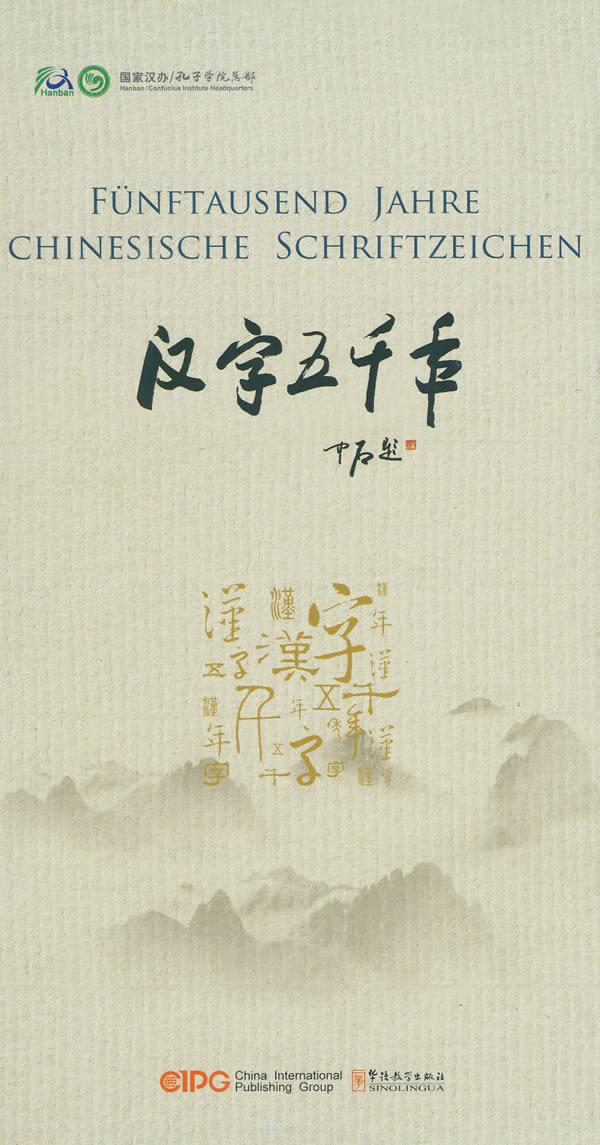 国家汉办/孔子学院总部
Hanban
Hanban/Confucius Institute Headquarters
FÜNFTAUSEND JAHRE
CHINESISCHE SCHRIFTZEICHEN
汉字五千年
中石题
漢 漢 字 漢
年
五 字 漢 漢
千 五 千
漢 年 年
年 五 字 漢
字 千 字 漢
CIPG China International
Publishing Group
华语教学出版社
SINOLINGUA